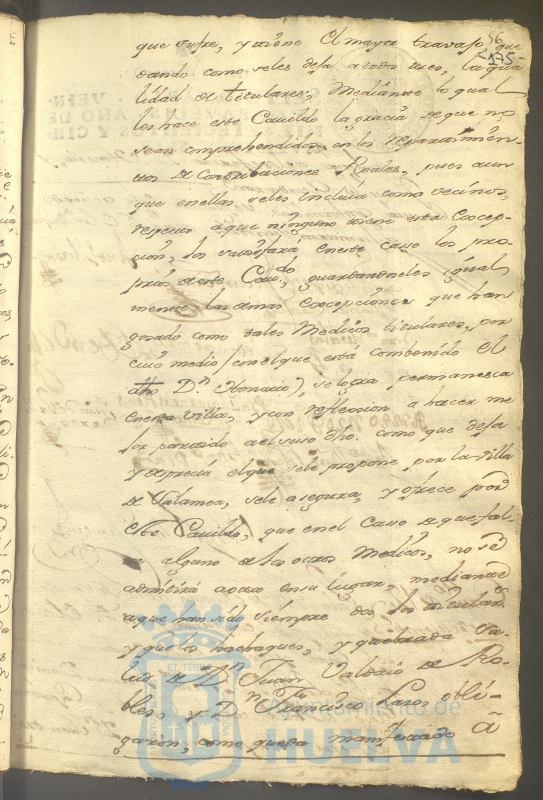 56
575
que sufre, y tiene el mayor travajo, que
dando como seles deja atodos tres, la qua
lidad de titulares; Mediante lo qual
les hace este Cavildo la gracia de que no
sean comprehendidos en los repartimien
tos de Contribuciones Reales, pues aun
que en ellos seles incluía como vecinos,
respecto aque ninguno tiene esta Excep-
ción, los satisfará en este caso los pro-
prios de este Cavdo. guardandoseles igual
mente las demas Excepciones que han
gosado como tales Medicos titulares, por
cuio medio (en el que está combenido el
dho Dn. Honorio), se logra permanesca
en esta Villa, y con reflexion a hacer me
jor partido aeluso dho. como que deja
y desprecia el que sele propone por la Villa
de Zalamea, sele asegura, y ofrece por
este Cavildo, que en el caso de que fal-
te alguno de los otros Medicos, no se
admitirá aotro en su lugar, mediante
aque han sido siempre dos los titulares
y que los hachaques, y quebrada sa-
lud de Dn. Juan Valerio de Ro-
bles, y Dn. Francisco Laso, obli-
garon, como queda manifestado â
ET TERRÆ
Ayuntamiento de
HUELVA